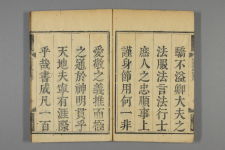 驕不溢卿大夫之
法服法言法行士
庶人之忠順事上
謹身節用何一非
愛敬之義推而極
之通於神明貫乎
天地夫寧有涯際
乎哉書成凡一百